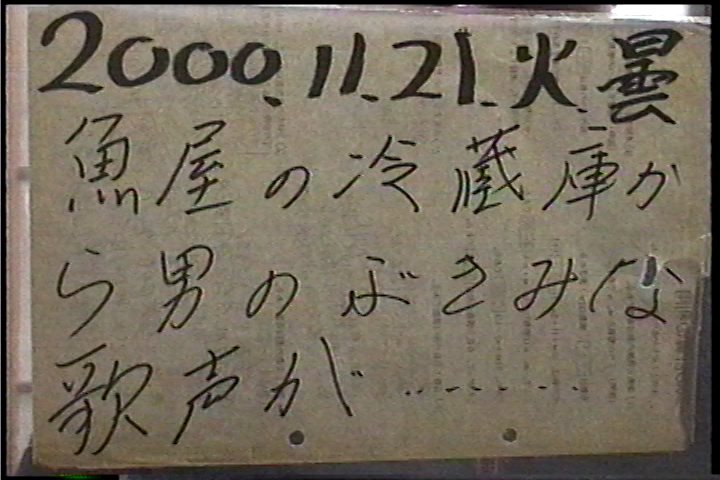 2000.11.21.火.曇
魚屋の冷蔵庫か
ら男のぶきみな
歌声が‥‥‥‥